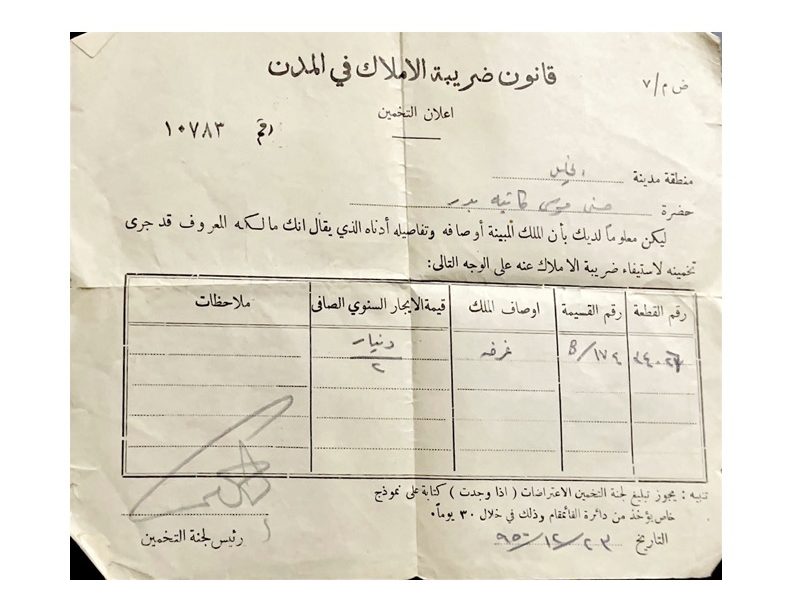 ض م/٧
قانون ضريبة الاملاك في المدن
اعلان التخمين
رقم ١٠٧٨٣
منطقة مدينة الخليل
حضرة حسني موسى كاتبه بدر
ليكن معلوماً لديك بأن الملك المبينة أوصافه وتفاصيله أدناه الذي يقال انك مالكه المعروف قد جرى
تخمينه لاستيفاء ضريبة الاملاك عنه على الوجه التالي:
رقم القطعة رقم القسيمة اوصاف الملك قيمة الايجار السنوي الصافي ملاحظات
١٧٤/B غرفه دينار
٢
تنبيه : يجوز تبليغ لجنة التخمين الاعتراضات ( اذا وجدت ) كتابة على نموذج
خاص يؤخذ من دائرة القائمقام وذلك في خلال ٣٠ يوماً.
التاريخ ٢٣/١٢/٩٥٢
رئيس لجنة التخمين